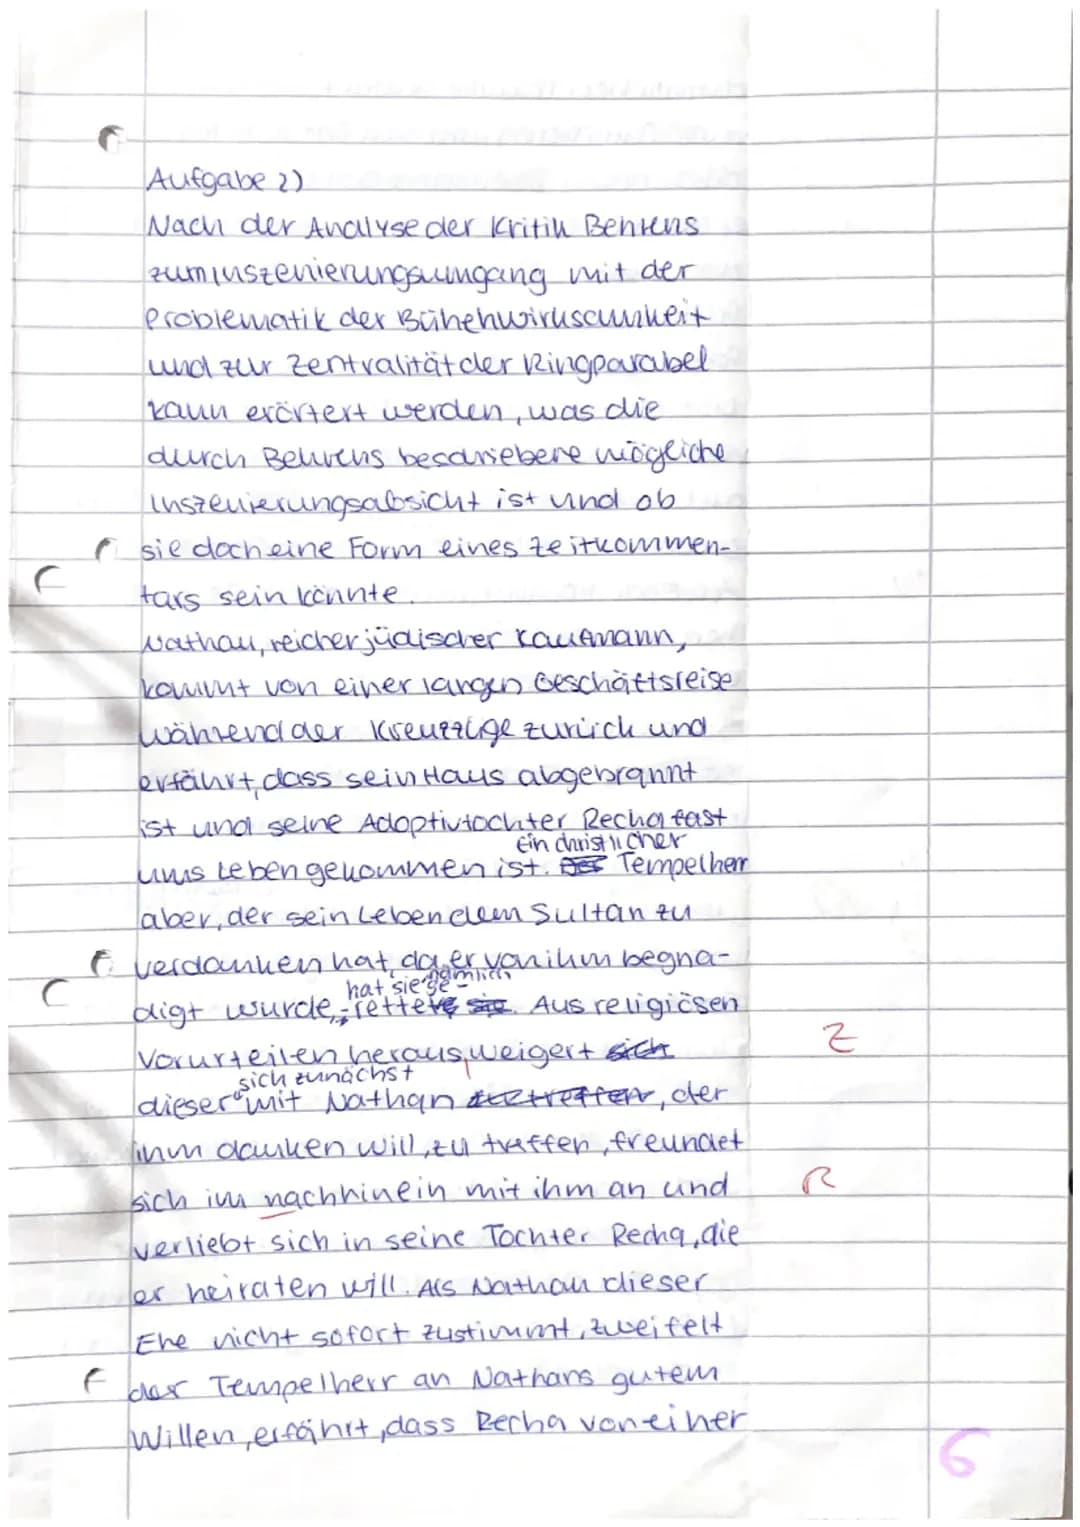 Aufgabe 2)
Nach der Analyse der Kritik Behrens
zum Inszenierungsumgang mit der
Problematik der Bühenwirksamkeit
und zur Zentralität der Ringparabel
kann erörtert werden, was die
durch Behrens beschriebene mögliche
Inszenierungsabsicht ist und ob
sie doch eine Form eines Zeitkommen-
tars sein könnte.
Nathan, reicher jüdischer Kaufmann,
kommt von einer langen Geschäftsreise
während der Kreuzzüge zurück und
erfährt, dass sein Haus abgebrannt
ist und seine Adoptivtochter Recha fast
ums Leben gekommen ist. Der Ein christlicher Tempelherr
aber, der sein Leben dem Sultan zu
verdanken hat, da er von ihm begna-
digt wurde, hat sie nämlich ge-rettet sie. Aus religiösen
Vorurteilen heraus, weigert sich Z
dieser sich zunächst mit Nathan zu treffen, der
ihm danken will, zu treffen, freundet
sich im nachhinein mit ihm an und R
verliebt sich in seine Tochter Recha, die
er heiraten will. Als Nathan dieser
Ehe nicht sofort zustimmt, zweifelt
der Tempelherr an Nathans gutem
Willen, erfährt, dass Recha von einer
6